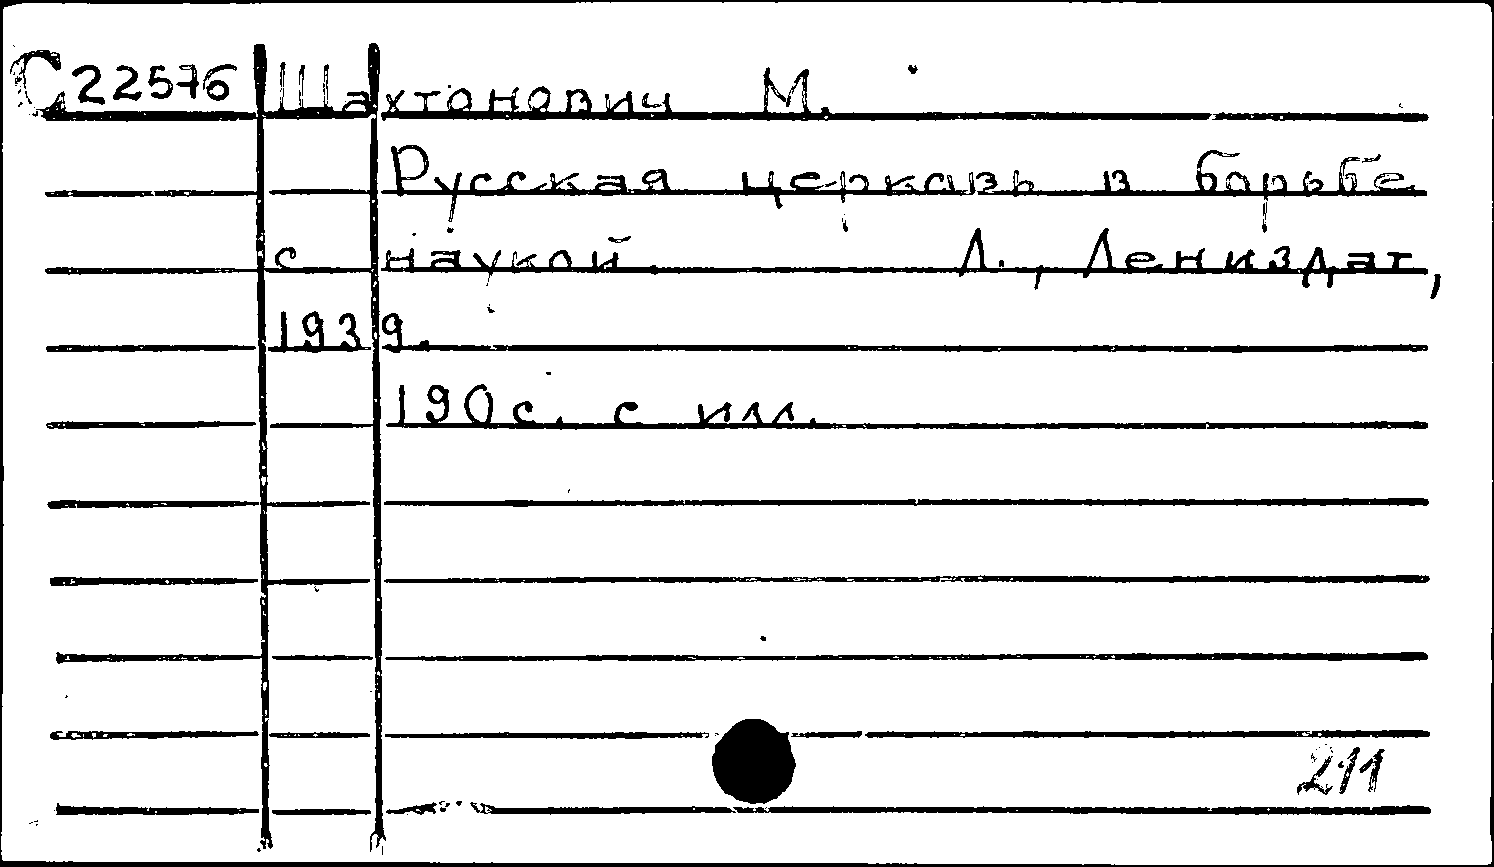 С22576 Шахтонович М.
Русская церковь в борьбе
с наукой. Л., Лениздат,
1939.
190с. с илл.
211